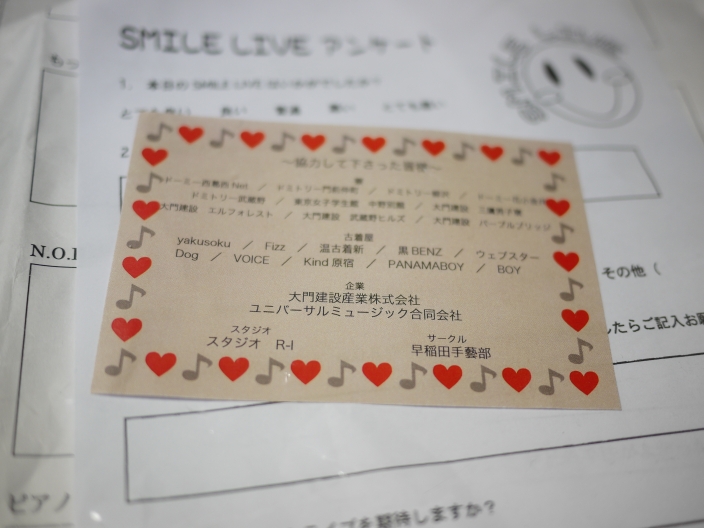 SMILE LIVE アンケート
1. 本日の SMILE LIVE はいかがでしたか?
とても良い 良い 普通 悪い とても悪い
2
～協力して下さった皆様～
寮
ドーミー西葛西 Net ／ ドミトリー門前仲町 ／ ドミトリー
ドミトリー武蔵野 ／ 東京女子学生館 中野別館 ／ 大門建設 三鷹男子寮
大門建設 エルフォレスト ／ 大門建設 武蔵野ヒルズ ／ 大門建設 パープルブリッジ
古着屋
yakusoku ／ Fizz ／ 温古着新 ／ 黒BENZ ／ ウェブスター
Dog ／ VOICE ／ Kind 原宿 ／ PANAMABOY ／ BOY
企業
大門建設産業株式会社
ユニバーサルミュージック合同会社
スタジオ
スタジオ R-I
サークル
早稲田手藝部
その他（
したらご記入お願
N.O.
ピアノ
ライブを期待しますか？